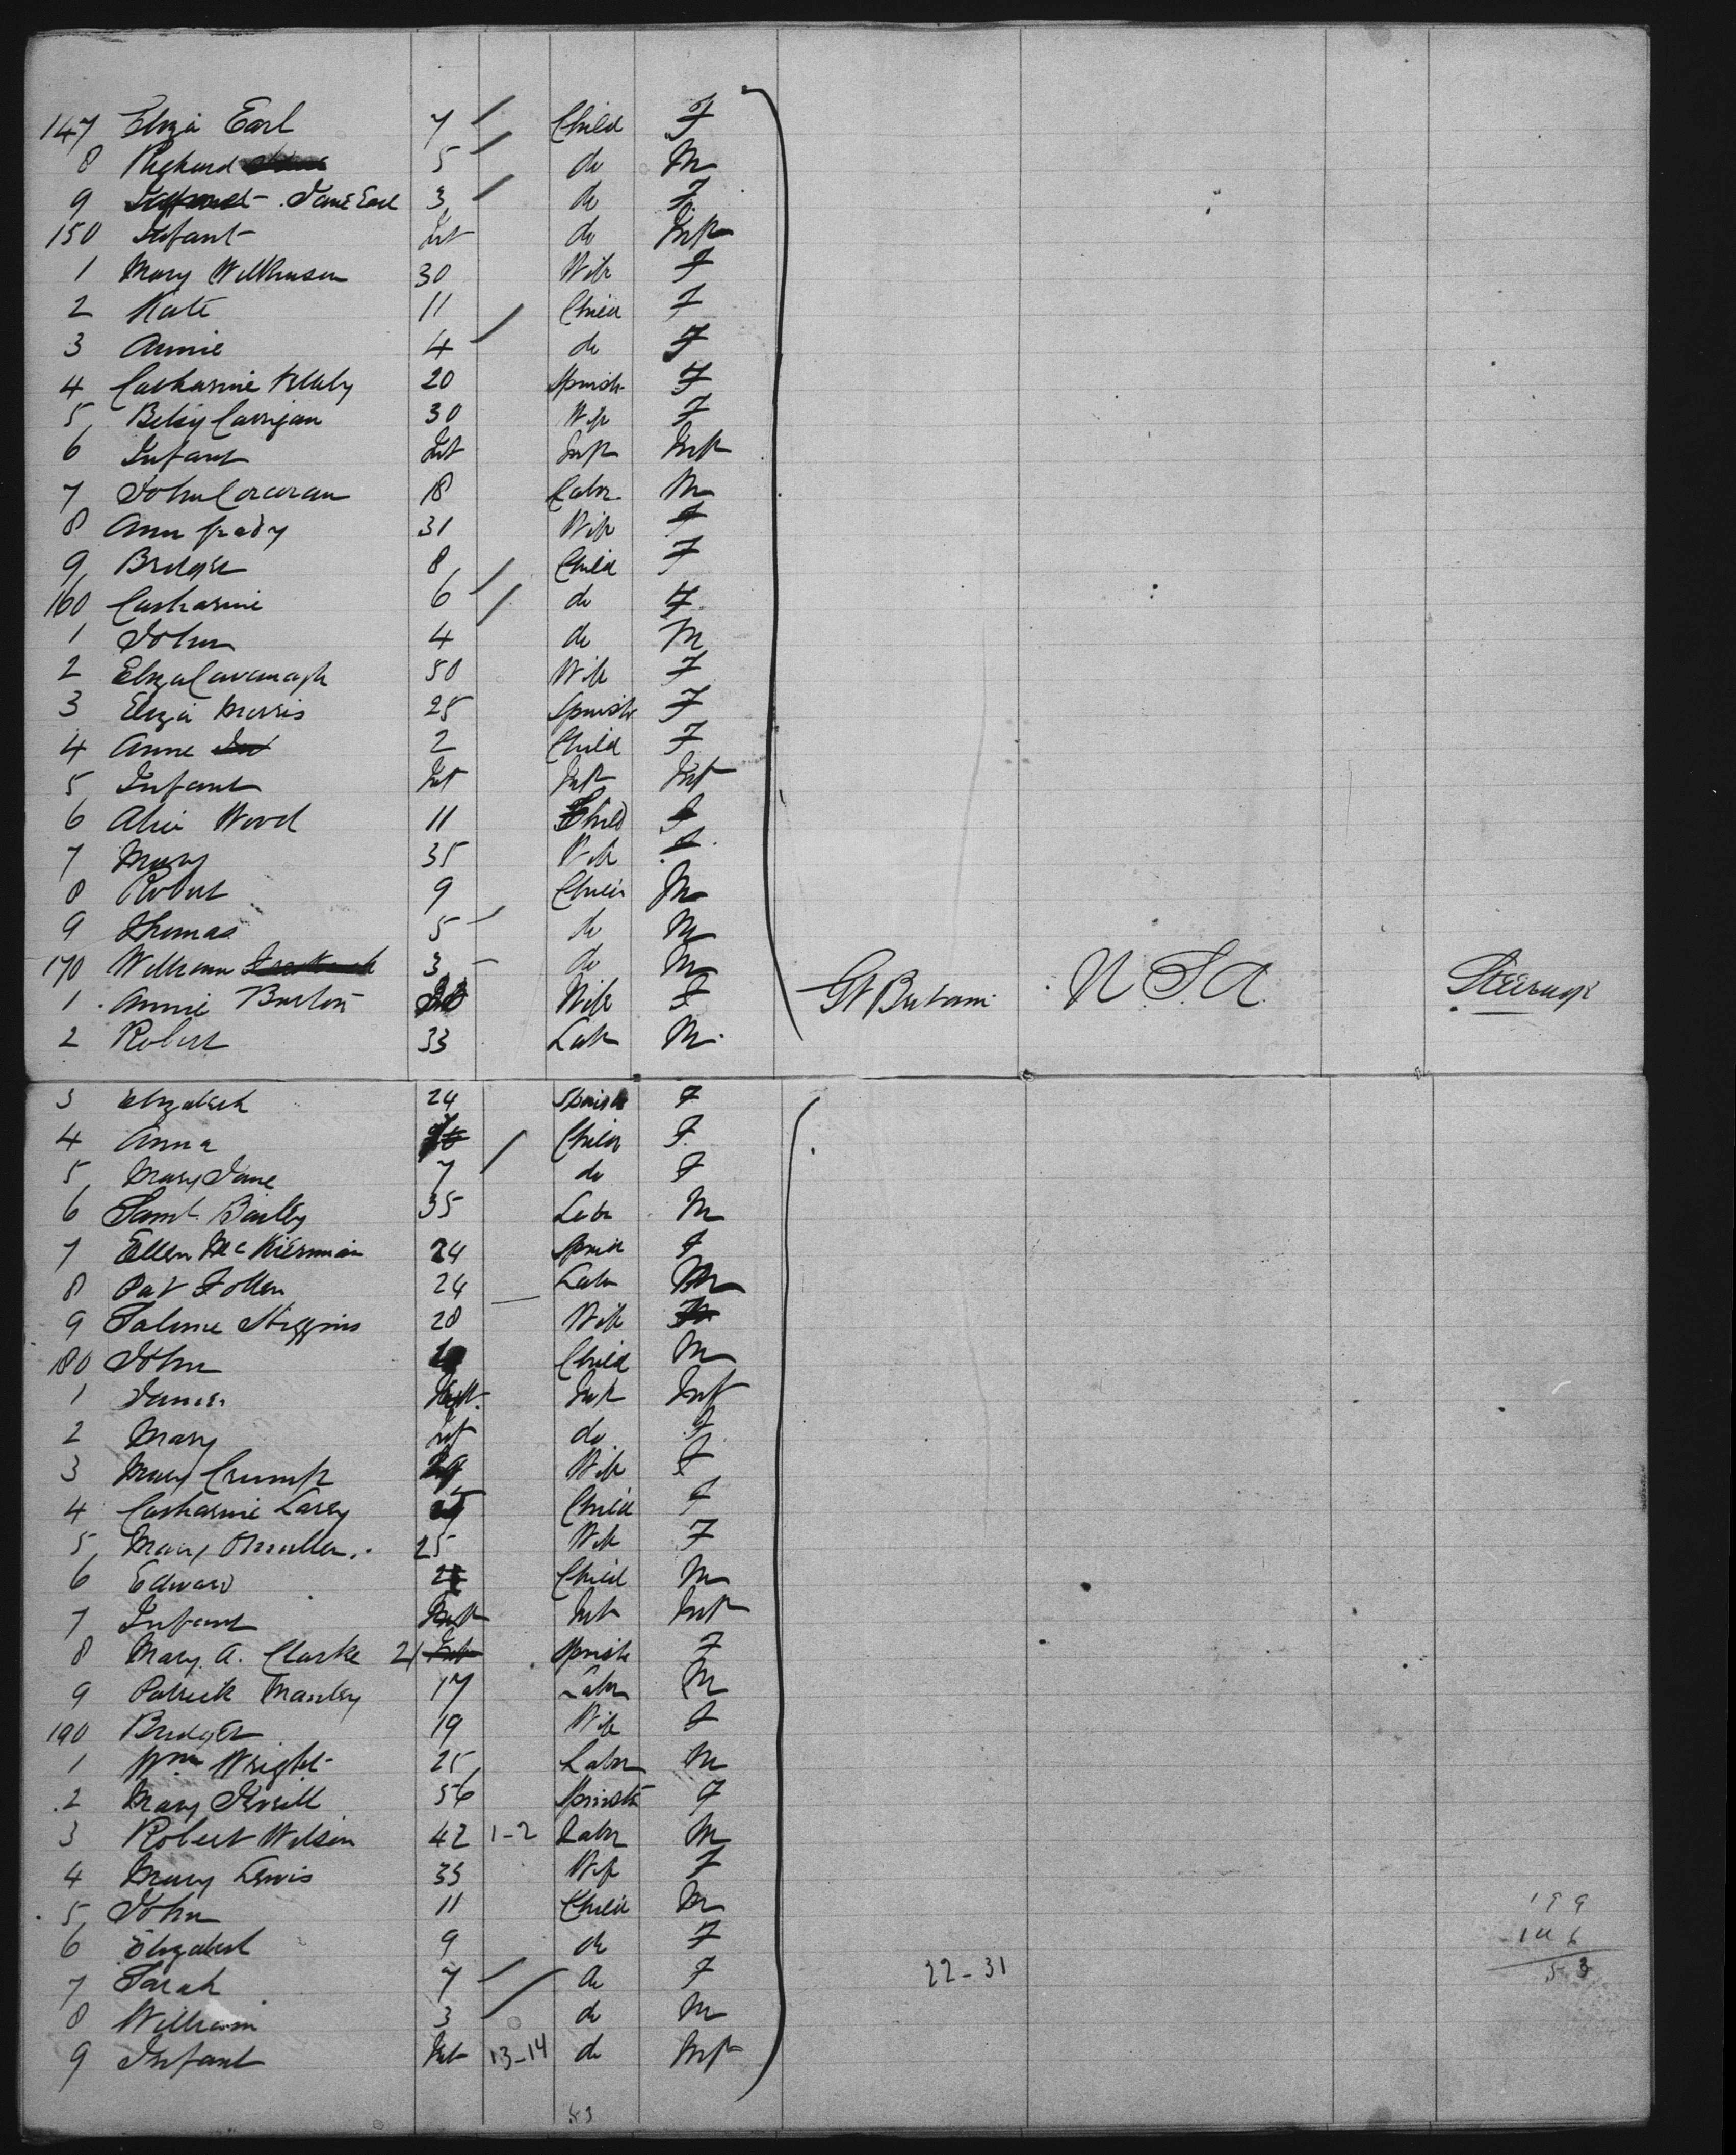 147 Eliza Earl 7 Child F
8 Richard 5 do M
9 Jane Earl 3 do F
150 Infant Inf do Inf
1 Mary Wilkinson 30 Wife F
2 Kate 11 Child F
3 Annie 4 do F
4 Catharine 20 Spinstr F
5 Betsy Carrigan 30 Wife F
6 Infant Inf Inf Inf
7 John Corcoran 18 Labr M
8 Ann Grady 31 Wife F
9 Bridget 8 Child F
160 Catharine 6 do F
1 John 4 do M
2 Eliza Cavanagh 50 Wife F
3 Eliza Morris 25 Spinstr F
4 Anne 2 Child F
5 Infant Inf Inf Inf
6 Alice Wood 11 Child F
7 Mary 35 Wife F
8 Robert 9 Child M
9 Thomas 5 do M
170 William 3 do M
1 Annie Burton Wife F Gt Britain U.S.A. Steerage
2 Robert 33 Labr M
3 Elizabeth 24 Spinstr F
4 Anna Child F
5 Mary Jane 7 do F
6 Saml. Bailey 35 Labr M
7 Ellen McKiernan 24 Spinstr F
8 Pat 24 Labr M
9 Higgins 28 Wife
180 John Child M
1 James Inf Inf Inf
2 Mary Inf do F
3 Mary Crump Wife F
4 Catharine Carey Child F
5 Mary 25 Wife F
6 Edward Child M
7 Infant Inf Inf Inf
8 Mary A. Clarke 21 Spinstr F
9 Patrick Manley 17 Labr M
190 Bridget 19 Wife F
1 Wm Wright 25 Labr M
2 Mary 56 Spinstr F
3 Robert Wilson 42 1-2 Labr M
4 Mary Lewis 33 Wife F
5 John 11 Child M
6 Elizabeth 9 do F
7 Sarah 7 do F 22-31
8 William 3 do M
9 Infant Inf 13-14 do Inf
199
146
53
53